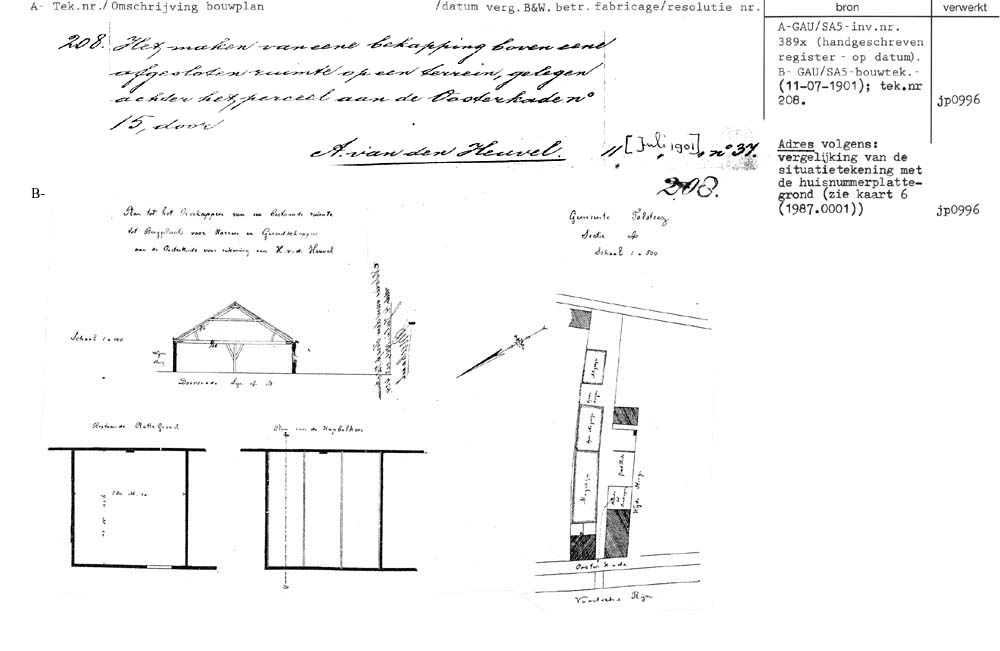 A- Tek.nr./Omschrijving bouwplan /datum verg.B&W.betr.fabricage/resolutie nr.
bron
verwerkt
208. Het maken van eene bekapping boven eene
afgesloten ruimte op een terrein, gelegen
achter het perceel aan de Oosterkade no
15, door
A. van den Heuvel. 11 [Juli 1901], no 37.
208.
A-GAU/SA5-inv.nr.
389x (handgeschreven
register - op datum).
B- GAU/SA5-bouwtek.-
(11-07-1901); tek.nr
208.
jp0996
Adres volgens:
vergelijking van de
situatietekening met
de huisnummerplatte-
grond (zie kaart 6
(1987.0001))
jp0996
B-
Plan tot het Overkappen van een bestaande ruimte
tot Bergplaats voor Karren en Gereedschappen
aan de Oosterkade voor rekening van H. v. d. Heuvel
Gemeente Tolsteeg
Sectie
Schaal 1 a 500
Schaal 1 a 100
Doorsnede Lijn A B
Bestaande Platte Grond
Plan van de Kapbalken
Magazijn
Wijde Steeg
Ooster Kade
Vaartsche Rijn